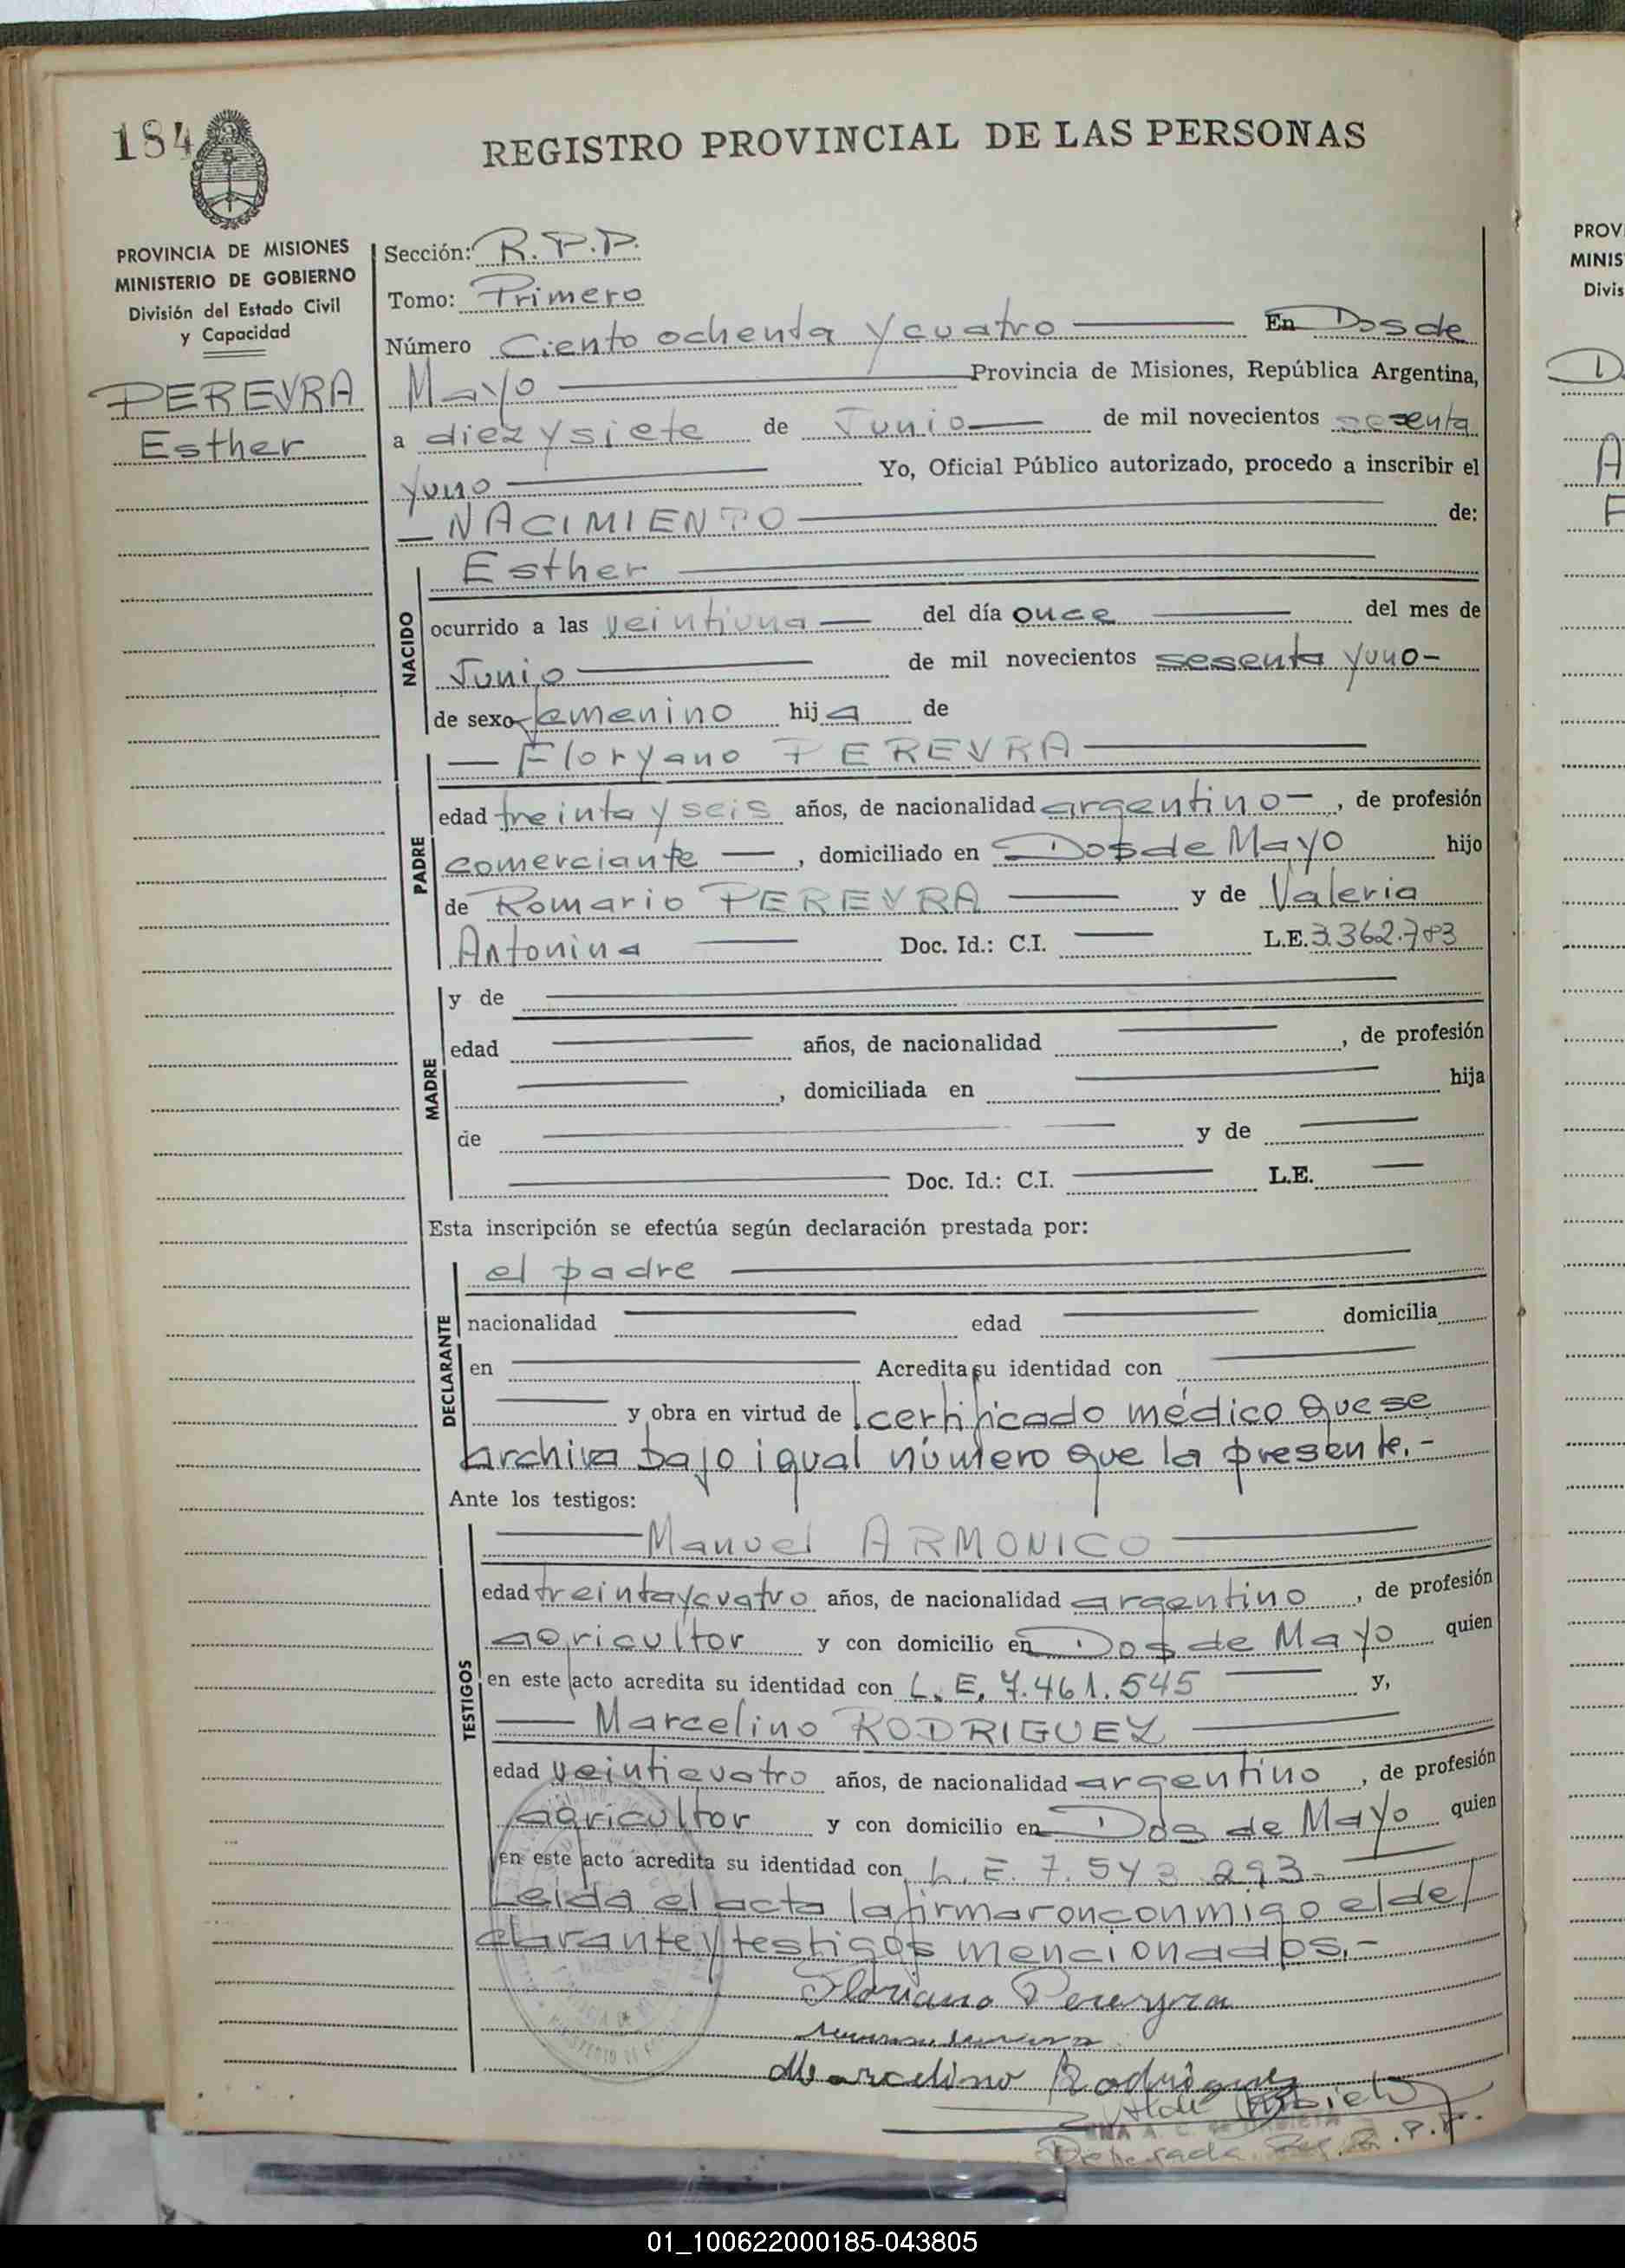 184
REGISTRO PROVINCIAL DE LAS PERSONAS
PROVINCIA DE MISIONES
MINISTERIO DE GOBIERNO
División del Estado Civil
y Capacidad
PEREYRA
Esther
Sección: R.P.P.
Tomo: Primero
Número Ciento ochenta y cuatro En Dos de
Mayo Provincia de Misiones, República Argentina,
a diez y siete de Junio de mil novecientos sesenta
y uno Yo, Oficial Público autorizado, procedo a inscribir el
NACIMIENTO de:
NACIDO
Esther
ocurrido a las veintiuna del día once del mes de
Junio de mil novecientos sesenta y uno-
de sexo femenino hija de
PADRE
Floryano PEREYRA
edad treinta y seis años, de nacionalidad argentino-, de profesión
comerciante, domiciliado en Dos de Mayo hijo
de Romario PEREYRA y de Valeria
Antonina Doc. Id.: C.I. L.E. 3.362.783
MADRE
y de
edad años, de nacionalidad , de profesión
, domiciliada en hija
de y de
Doc. Id.: C.I. L.E.
Esta inscripción se efectúa según declaración prestada por:
DECLARANTE
el padre
nacionalidad edad domicilia
en Acredita su identidad con
y obra en virtud de certificado médico que se
archiva bajo igual número que la presente.-
Ante los testigos:
TESTIGOS
Manuel ARMONICO
edad treinta y cuatro años, de nacionalidad argentino, de profesión
agricultor y con domicilio en Dos de Mayo quien
en este acto acredita su identidad con L.E. 7.461.545 y,
Marcelino RODRIGUEZ
edad veinticuatro años, de nacionalidad argentino, de profesión
agricultor y con domicilio en Dos de Mayo quien
en este acto acredita su identidad con L.E. 7.543.293-
Leida el acta la firmaron conmigo el de/
clarante y testigos mencionados.-
Floriano Pereyra
Marcelino Rodriguez
R.P.P.
PROV
MINIS
Divis
01_100622000185-043805